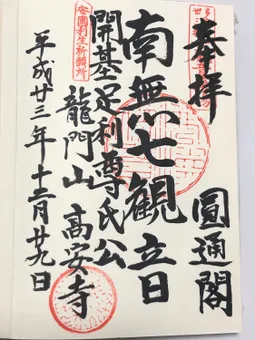 奉拝
圓通閣
南無七観立日
開基足利尊氏公
龍門山 高安寺
平成廿三年十二月廿九日
安國利生祈願所